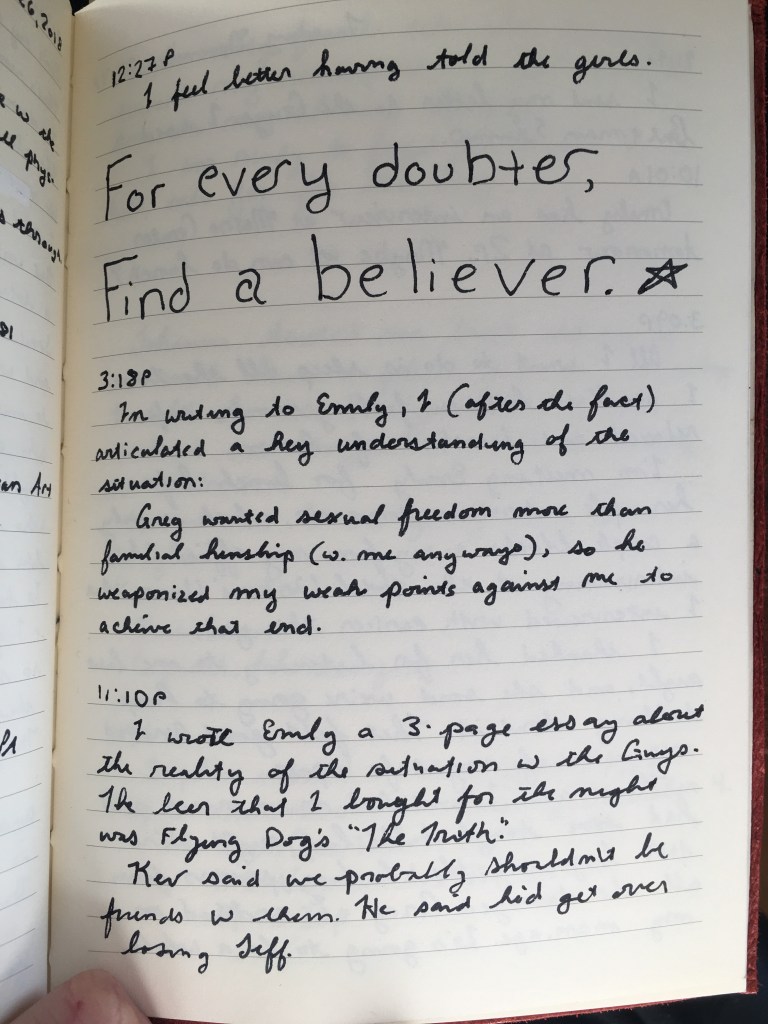 26, 2018
w the
through
an Art
12:27P
I feel better having told the girls.
For every doubter,
Find a believer. ☆
3:18P
In writing to Emily, I (after the fact)
articulated a key understanding of the
situation:
Greg wanted sexual freedom more than
familial kinship (w. me anyways), so he
weaponized my weak points against me to
achive that end.
11:10P
I wrote Emily a 3-page essay about
the reality of the situation w the Guys.
The beer that I bought for the night
was Flying Dog's "The Truth."
Kev said we probably shouldn't be
friends w them. He said hid get over
losing Jeff.